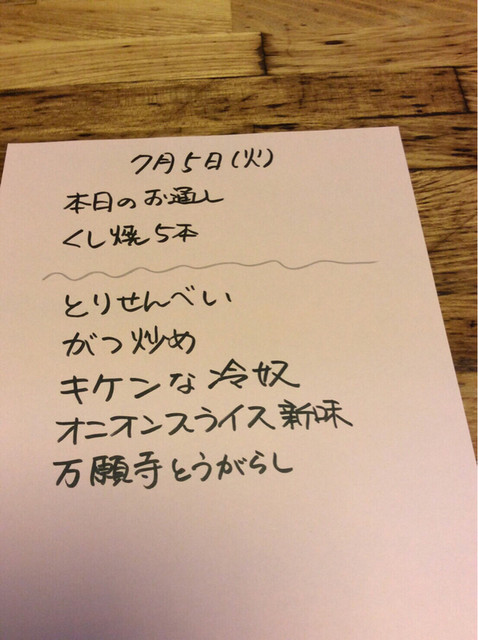 7月5日(火)
本日のお通し
くし焼5本
とりせんべい
がつ炒め
キケンな冷奴
オニオンスライス新味
万願寺とうがらし